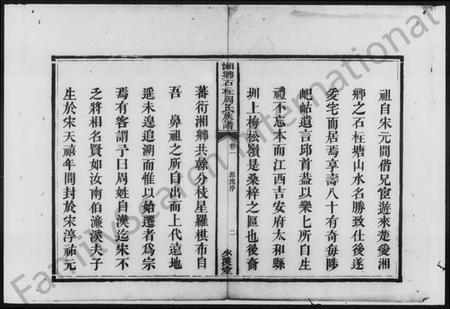 祖自宋元間偕兄宦遊來楚愛湘
鄉之石柱塘山水名勝致仕後遂
爰宅而居焉享壽八十有奇每陟
屺岵遺言邱首葢以樂乙所自生
禮不忘本而江西吉安府太和縣
圳上梅松嶺是桑梓之區也後裔
湘鄉石柱周氏族譜
卷一
源流序
二
蕃衍湘鄉共縣分枝星羅棋布自
吾 鼻祖之所自出而上代遠地
遥未遑追溯而惟以始遷者為宗
焉有客謂予曰周姓自漢迄宋不
乏將相名賢如汝南伯濂溪夫子
生於宋天禧年間封於宋淳祐元
FamilySearch International